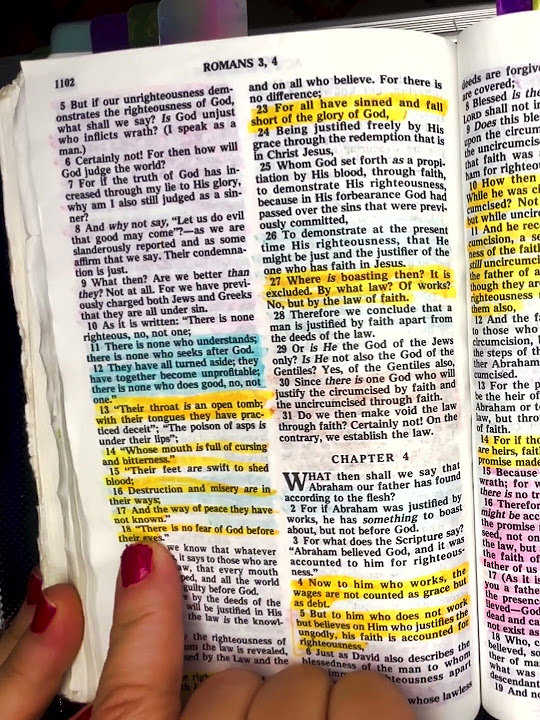 1102
ROMANS 3, 4
5 But if our unrighteousness dem-
onstrates the righteousness of God,
what shall we say? Is God unjust
who inflicts wrath? (I speak as a
man.)
6 Certainly not! For then how will
God judge the world?
7 For if the truth of God has in-
creased through my lie to His glory,
why am I also still judged as a sin-
ner?
8 And why not say, "Let us do evil
that good may come"?—as we are
slanderously reported and as some
affirm that we say. Their condemna-
tion is just.
9 What then? Are we better than
they? Not at all. For we have previ-
ously charged both Jews and Greeks
that they are all under sin.
10 As it is written: "There is none
righteous, no, not one;
11 There is none who understands;
there is none who seeks after God.
12 They have all turned aside; they
have together become unprofitable;
there is none who does good, no, not
one."
13 "Their throat is an open tomb;
with their tongues they have prac-
ticed deceit"; "The poison of asps is
under their lips";
14 "Whose mouth is full of cursing
and bitterness."
15 "Their feet are swift to shed
blood;
16 Destruction and misery are in
their ways;
17 And the way of peace they have
not known."
18 "There is no fear of God before
their eyes."
we know that whatever
it says to those who are
that every mouth
and all the world
guilty before God.
by the deeds of the
will be justified in His
the law is the knowl-
the righteousness of
the law is revealed,
by the Law and the
and on all who believe. For there is
no difference;
23 For all have sinned and fall
short of the glory of God,
24 Being justified freely by His
grace through the redemption that is
in Christ Jesus,
25 Whom God set forth as a propi-
tiation by His blood, through faith,
to demonstrate His righteousness,
because in His forbearance God had
passed over the sins that were previ-
ously committed,
26 To demonstrate at the present
time His righteousness, that He
might be just and the justifier of the
one who has faith in Jesus.
27 Where is boasting then? It is
excluded. By what law? Of works?
No, but by the law of faith.
28 Therefore we conclude that a
man is justified by faith apart from
the deeds of the law.
29 Or is He the God of the Jews
only? Is He not also the God of the
Gentiles? Yes, of the Gentiles also,
30 Since there is one God who will
justify the circumcised by faith and
the uncircumcised through faith.
31 Do we then make void the law
through faith? Certainly not! On the
contrary, we establish the law.
CHAPTER 4
WHAT then shall we say that
Abraham our father has found
according to the flesh?
2 For if Abraham was justified by
works, he has something to boast
about, but not before God.
3 For what does the Scripture say?
"Abraham believed God, and it was
accounted to him for righteous-
ness."
4 Now to him who works, the
wages are not counted as grace but
as debt.
5 But to him who does not work
but believes on Him who justifies the
ungodly, his faith is accounted for
righteousness,
6 Just as David also describes the
blessedness of the man to whom
righteousness apart
whose lawless
deeds are forgive
are covered;
8 Blessed is the
LORD shall not in
9 Does this bless
upon the circum
the uncircumcised
that faith was a
ham for righteou
10 How then
While he was ci
cumcised? Not
but while uncir
11 And he rec
cumcision, a se
ness of the fait
still uncircumc
the father of a
though they ar
righteousness
them also,
12 And the fa
to those who
circumcision,
the steps of th
ther Abraham
cumcised.
13 For the p
be the heir of
Abraham or t
law, but thro
of faith.
14 For if tho
are heirs, fait
promise made
15 Because
wrath; for w
there is no tr
16 Therefor
might be acc
the promise
seed, not on
the law, but
the faith of
father of us
17 (As it is
you a father
the presence
lieved—God
dead and ca
not exist as
18 Who, c
believed, so
ther of man
what was
descendant
19 And no